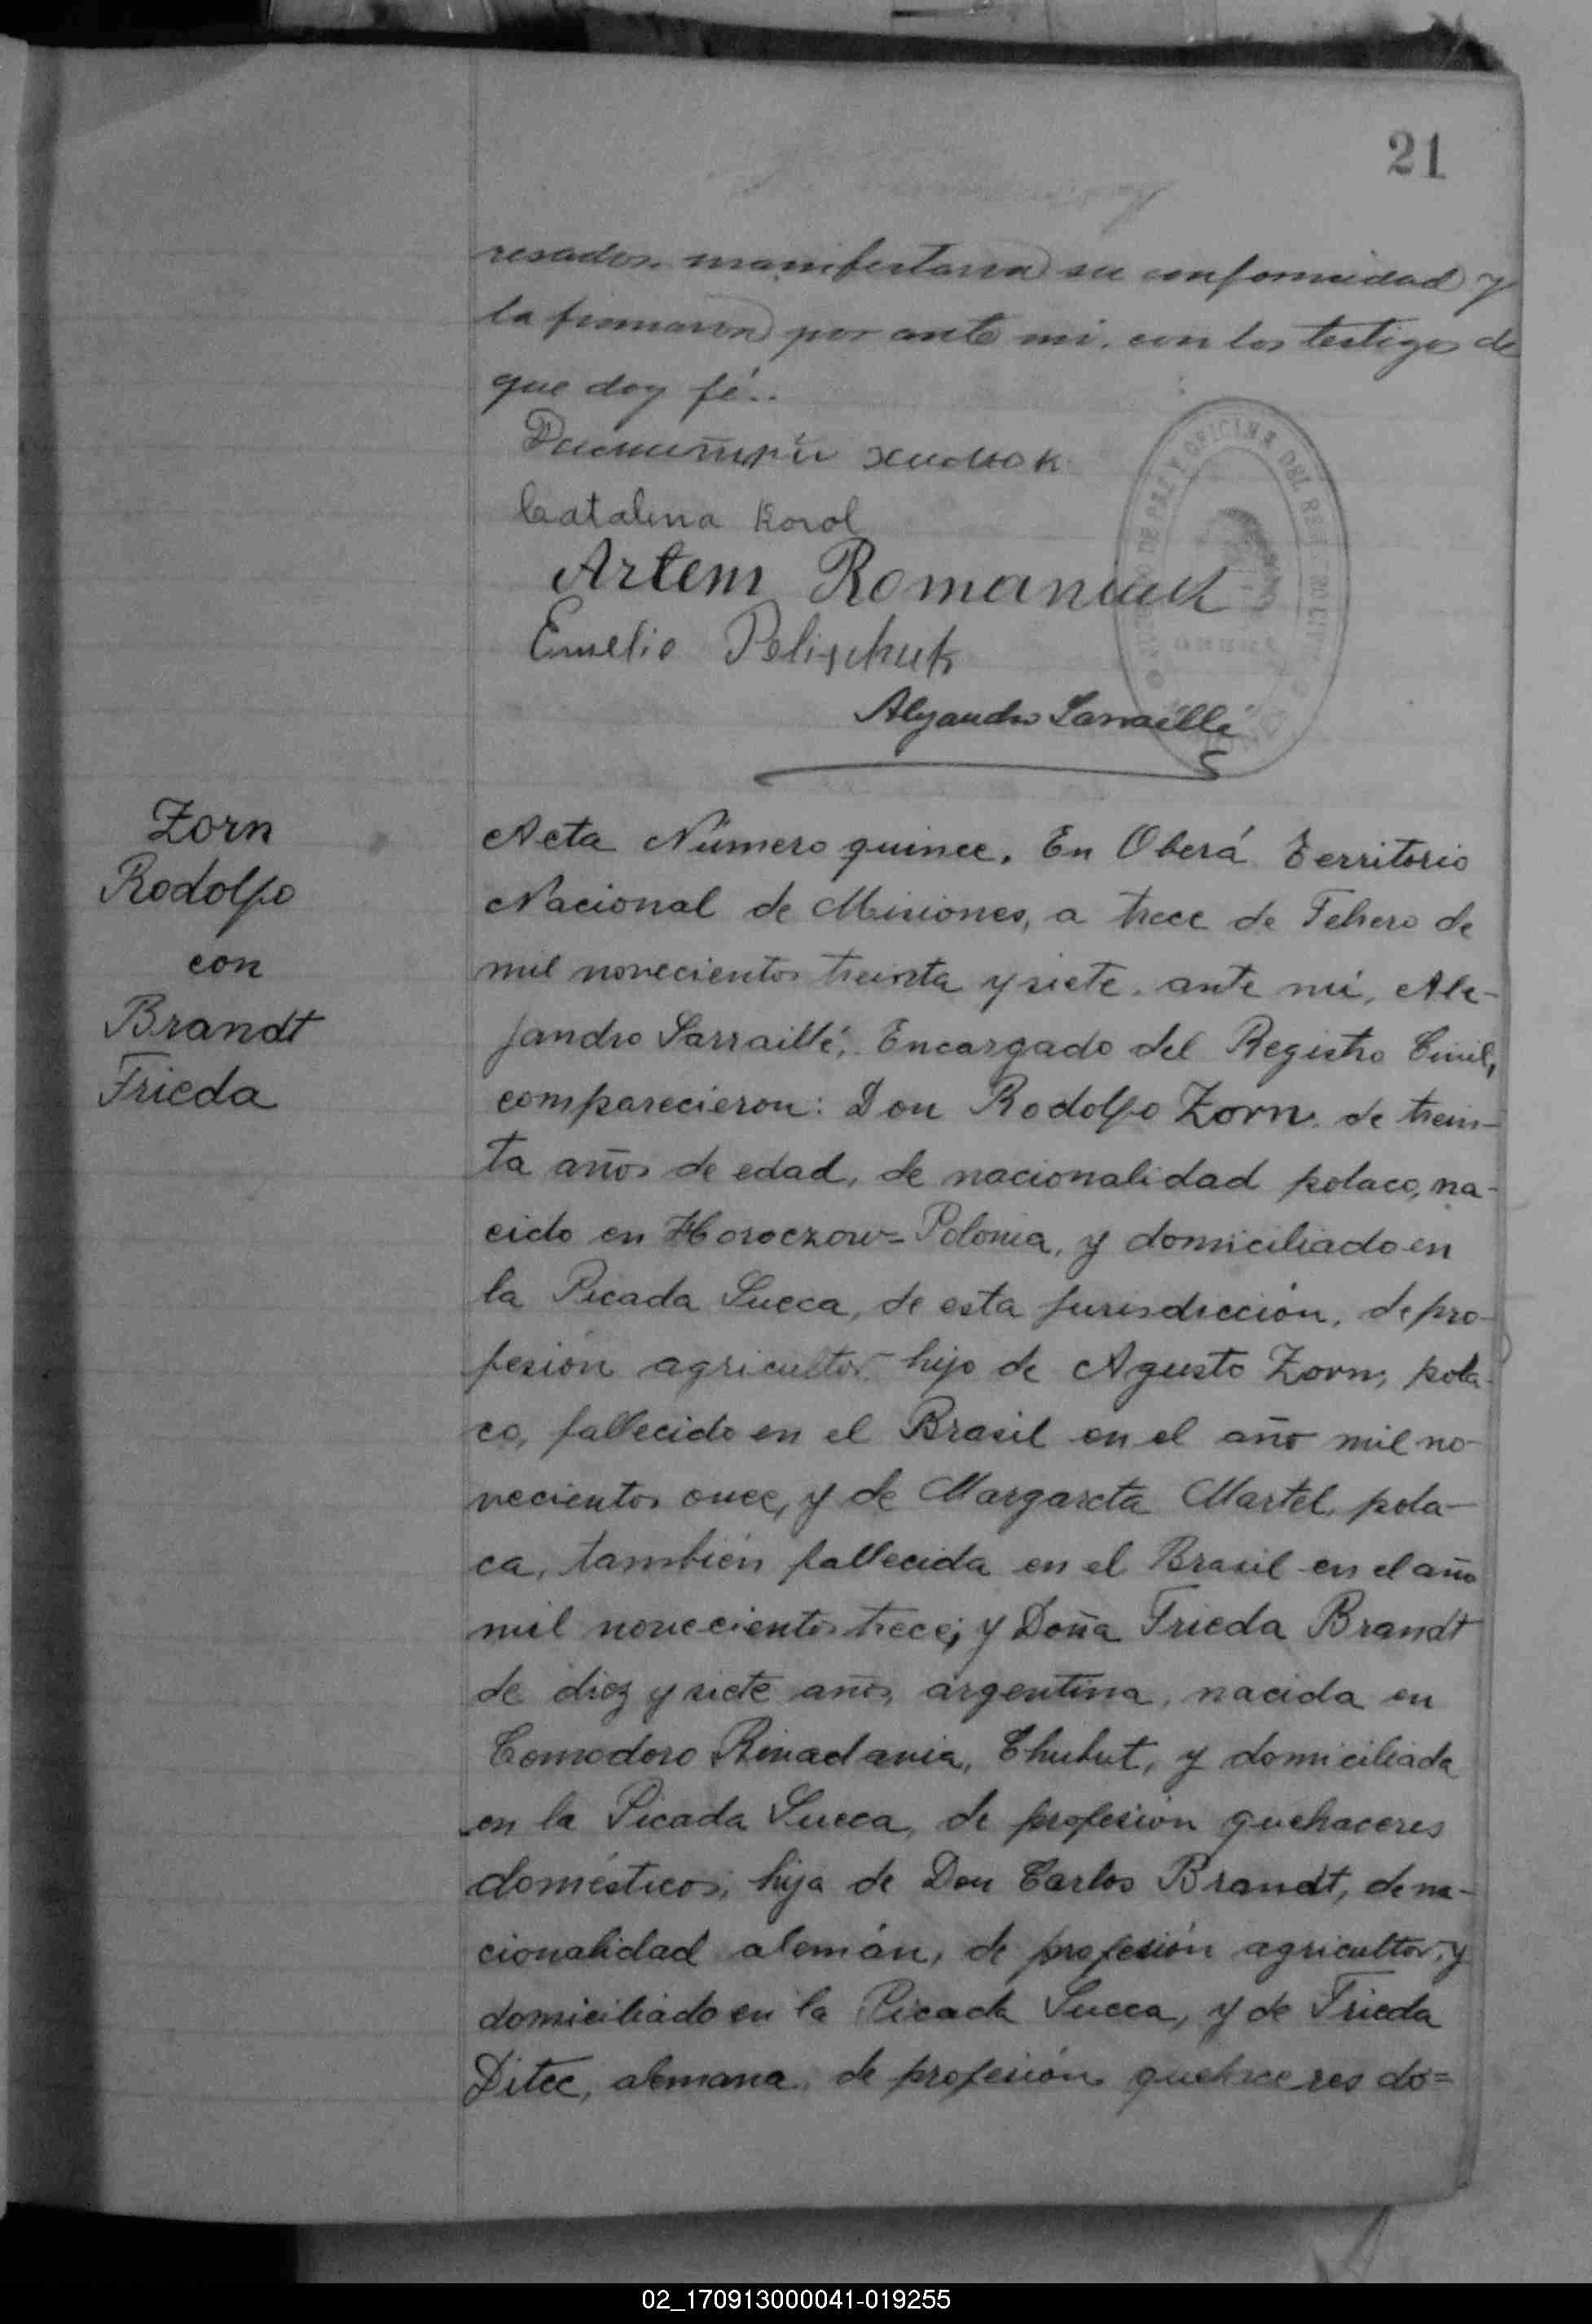 21
resados. manifestaron su conformidad y
la firmaron por ante mi, con los testigos de
que doy fé..
Catalina Korol
Artem Romaniuk
Emelio Pelischuk
Alejandro Sarraillé
Zorn
Rodolfo
con
Brandt
Frieda
Acta Número quince. En Oberá Territorio
Nacional de Misiones, a trece de Febrero de
mil novecientos treinta y siete. ante mi, Ale-
jandro Sarraillé, Encargado del Registro Civil,
comparecieron: Don Rodolfo Zorn. de trein-
ta años de edad, de nacionalidad polaco, na-
cido en Horoczow= Polonia, y domiciliado en
la Picada Sueca, de esta jurisdicción, de pro-
fesión agricultor. hijo de Agusto Zorn, pola-
co, fallecido en el Brasil en el año mil no-
vecientos once, y de Margareta Martel, pola-
ca, también fallecida en el Brasil en el año
mil novecientos trece; y Doña Frieda Brandt
de diez y siete años, argentina, nacida en
Comodoro Rivadavia, Chubut, y domiciliada
en la Picada Sueca, de profesión quehaceres
domésticos, hija de Don Carlos Brandt, de na-
cionalidad alemán, de profesión agricultor, y
domiciliado en la Picada Sueca, y de Frieda
Ditec, alemana, de profesión quehaceres do=
02_170913000041-019255